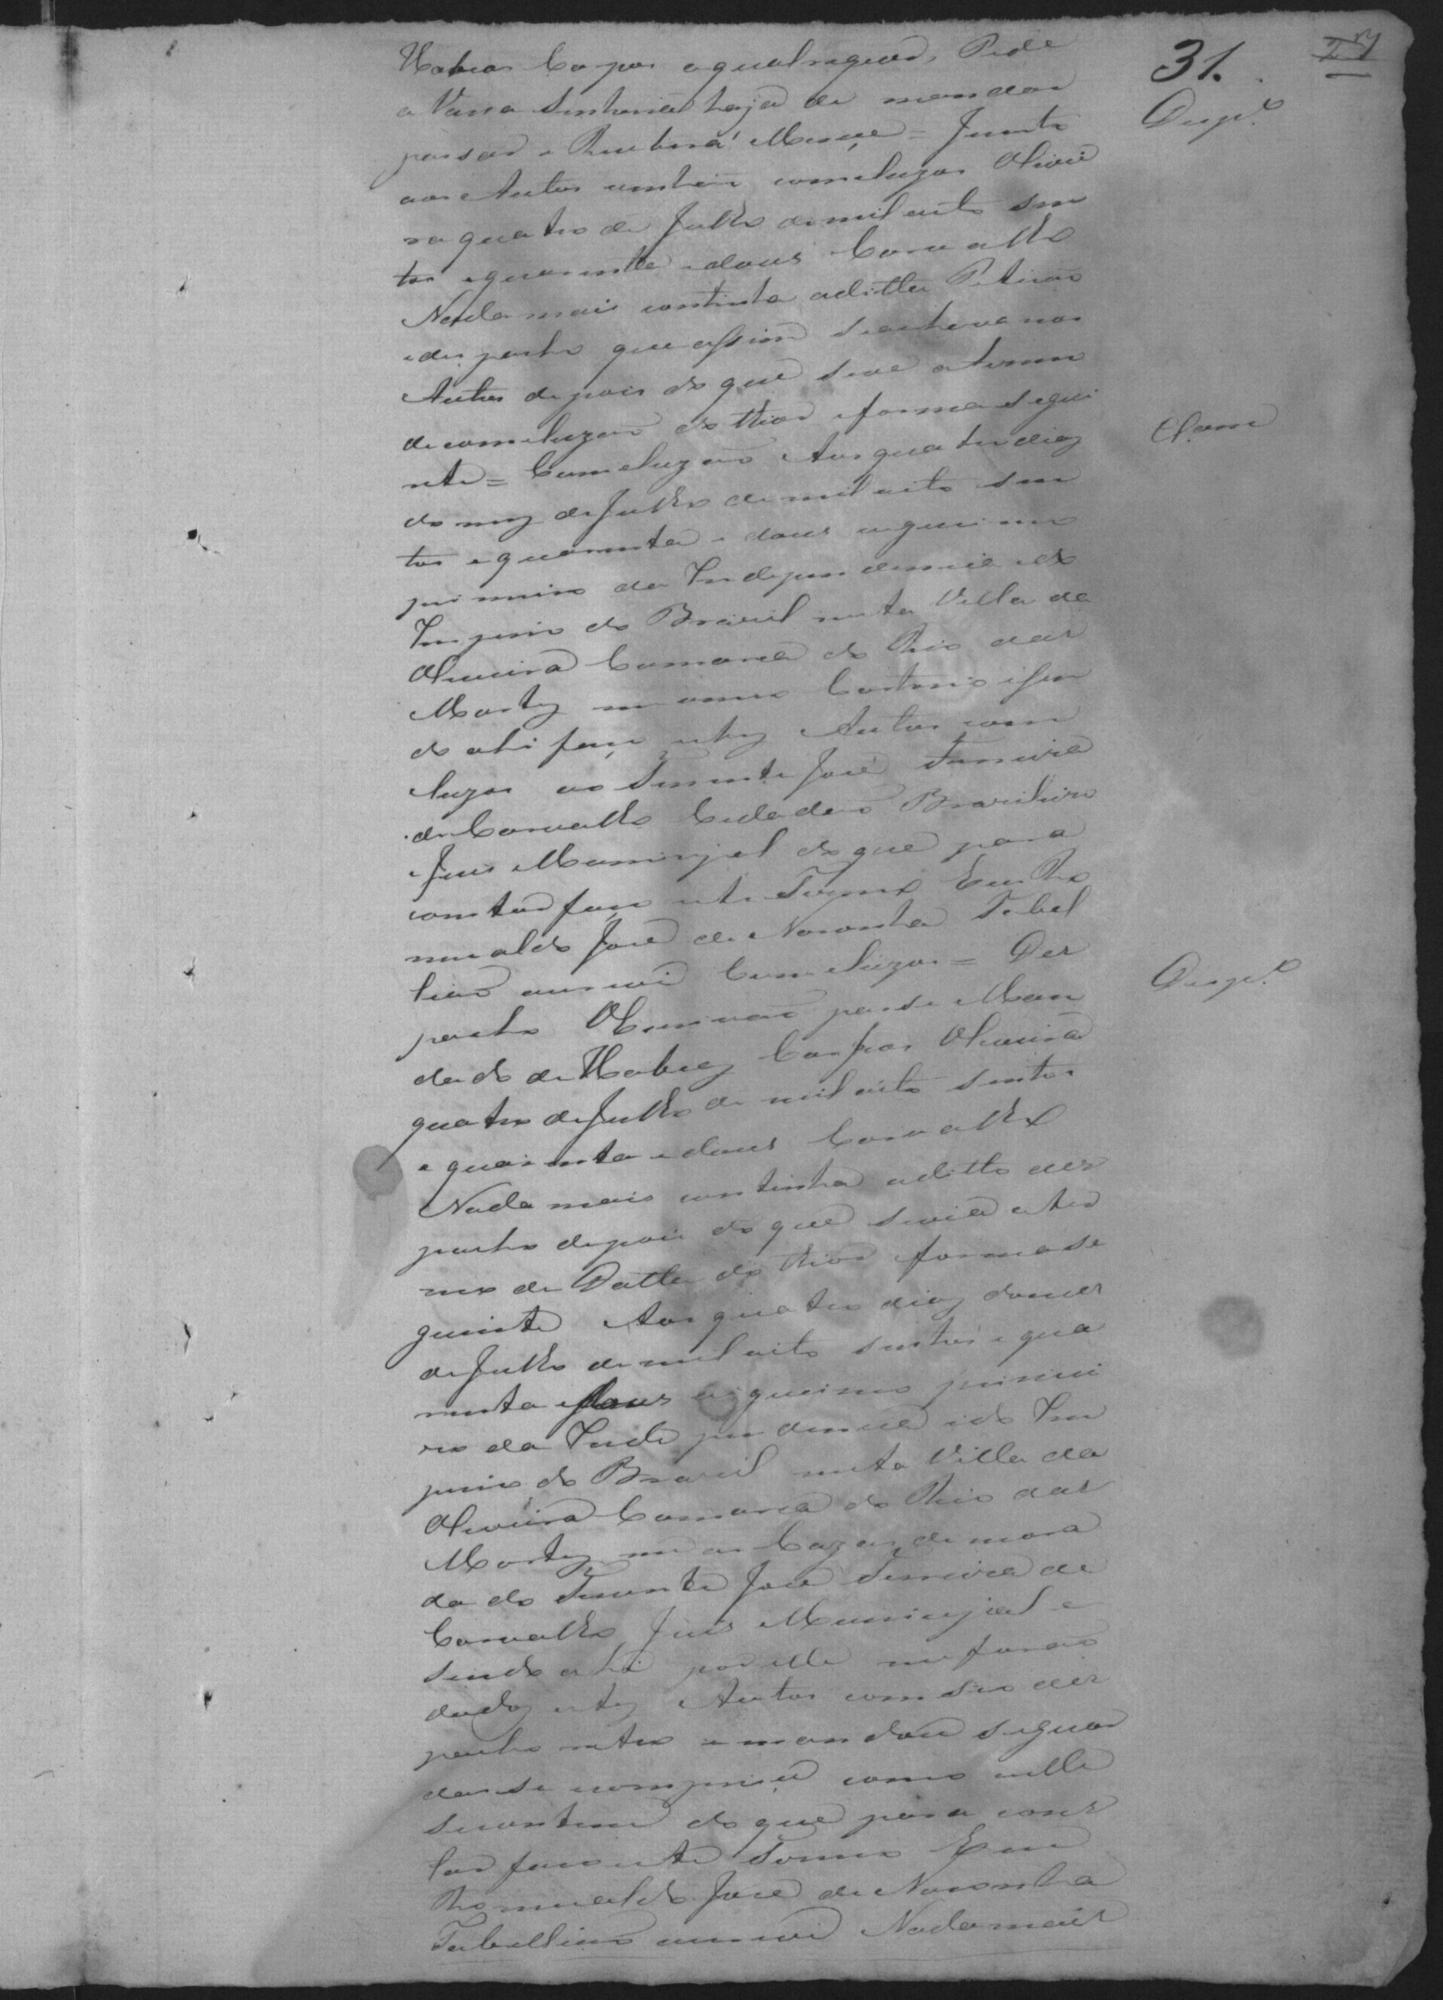 31.
Habias Corpus aqual requer, Pede
a Vossa Senhoria haja de mandar
passar e Receberá Merce = Junta
aos Autos venhaõ comcluzos Olivei
ra quatro de Julho de mil oito sen
tos e quarenta e dous Carvalho
Nada mais continha adita Petiçaõ
e despacho que assim se achava nos
Autos depois do que se ve otermo
de comcluzaõ do thior e forma segui
nte = Comcluzaõ Aos quatro dias
do mez de Julho de mil oito sen
tos e quarenta e dous vigecimo
primeiro da Independencia e do
Imperio do Brazil nesta Villa da
Oliveira Comarca do Rio das
Mortes em omeo Cartorio e sen
do ahi faço estes Autos com
cluzos ao Tenente José Ferreira
de Carvalho Cidadaõ Brazileiro
e Juis Municipal do que para
constar faço este Termo Eu Ro
mualdo José de Noronha Tabel
liaõ escrevi Comcluzos = Des
pacho O Escrivaõ passe Man
dado de Habias Corpus Oliveira
quatro de Julho de mil oito sentos
e quarenta e dous Carvalho
Nada mais continha adito des
pacho depois do que se via o ter
mo de Datta do thior e forma se
guinte Aos quatro dias domes
de Julho de mil oito sentos e qua
renta e dous vigecimo primei
ro da Independencia e do Im
perio do Brazil nesta Villa da
Oliveira Comarca do Rio das
Mortes em as Cazas de mora
da do Tenente José Ferreira de
Carvalho Juis Municipal e
sendo ahi por elle me foraõ
dados estes Autos com seo des
pacho retro e mandou seguar
dasse e comprisse como nelle
secontem do que para cons
tar faço este Termo Eu
Romualdo José de Noronha
Tabelliaõ escrevi Nada mais
Desp.º
Clam
Desp.º